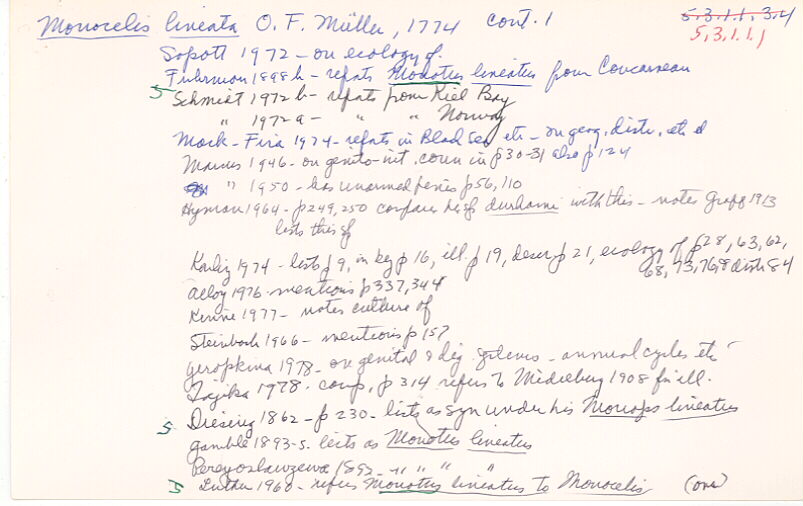 Monocelis lineata O. F. Müller, 1774 cont. 1
5.3.1.1.3.4
5.3.1.1
Sopott 1972 – on ecology of.
Fuhrman 1898b – repts Monotus lineatus from Concarneau
5 Schmidt 1972b – repts from Kiel Bay
" 1972a – " " Norway
Mack-Fira 1974 – repts in Black Sea etc – on geog. distr. etc
Marcus 1946 – on genito-int. conn in p30-31 also p124
" 1950 – has unarmed penis p56, 110
Hyman 1964 – p249, 250 compares her sp durhami with this – notes Graff 1913
lists this sp
Karling 1974 – lists p9, in key p16, ill. p19, descr p21, ecology of p28, 63, 62,
68, 73, 76, 8 distr 84
1976 – mentions p337, 344
1977 – notes culture of
Steinböck 1966 – mentions p157
1978 – on genital & dig. systems – annual cycles etc
Tajika 1978. comp. p314 refers to Midelburg 1908 for ill.
5 Diesing 1862 – p230 – lists as syn under his Monops lineatus
Gamble 1893 – s. lists as Monotus lineatus
Pereyaslawzewa 1892 – " " " "
5 Luther 1960 – refers Monotus lineatus to Monocelis (over)